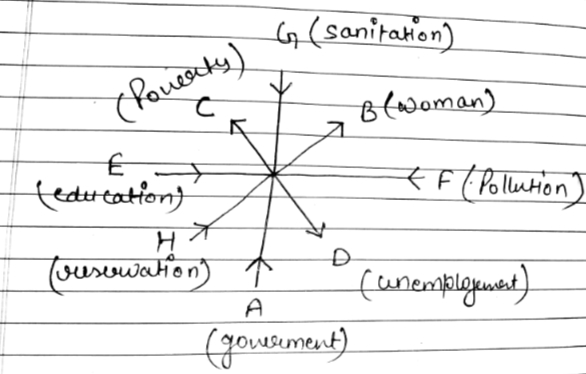 G (sanitation)
(Poverty)
C
B (woman)
E
(education)
F (Pollution)
H
(reservation)
D
(unemployement)
A
(goverment)